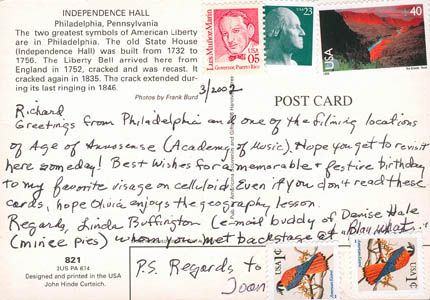 INDEPENDENCE HALL
Philadelphia, Pennsylvania
The two greatest symbols of American Liberty
are in Philadelphia. The old State House
(Independence Hall) was built from 1732 to
1756. The Liberty Bell arrived here from
England in 1752, cracked and was recast. It
cracked again in 1835. The crack extended dur-
ing its last ringing in 1846.
Photos by Frank Burd
Luis Muñoz Marín
Governor, Puerto Rico
USA
05
USA
23
USA
40
3/2002
POST CARD
Richard
Greetings from Philadelphia and one of the filming locations
of Age of Innosense (Academy of Music). Hope you get to revisit
here someday! Best wishes for a memorable & festive birthday
to my favorite visage on celluloid. Even if you don't read these
cards, hope Olivia enjoys the geography lesson.
Regards, Linda Buffington (e-mail buddy of Danise Hale
(mincee pies) whom you met backstage at "Blah What"
P.S. Regards to
Joan
821
2US PA 674
Designed and printed in the USA
John Hinde Curteich.
USA 1¢
USA 1¢